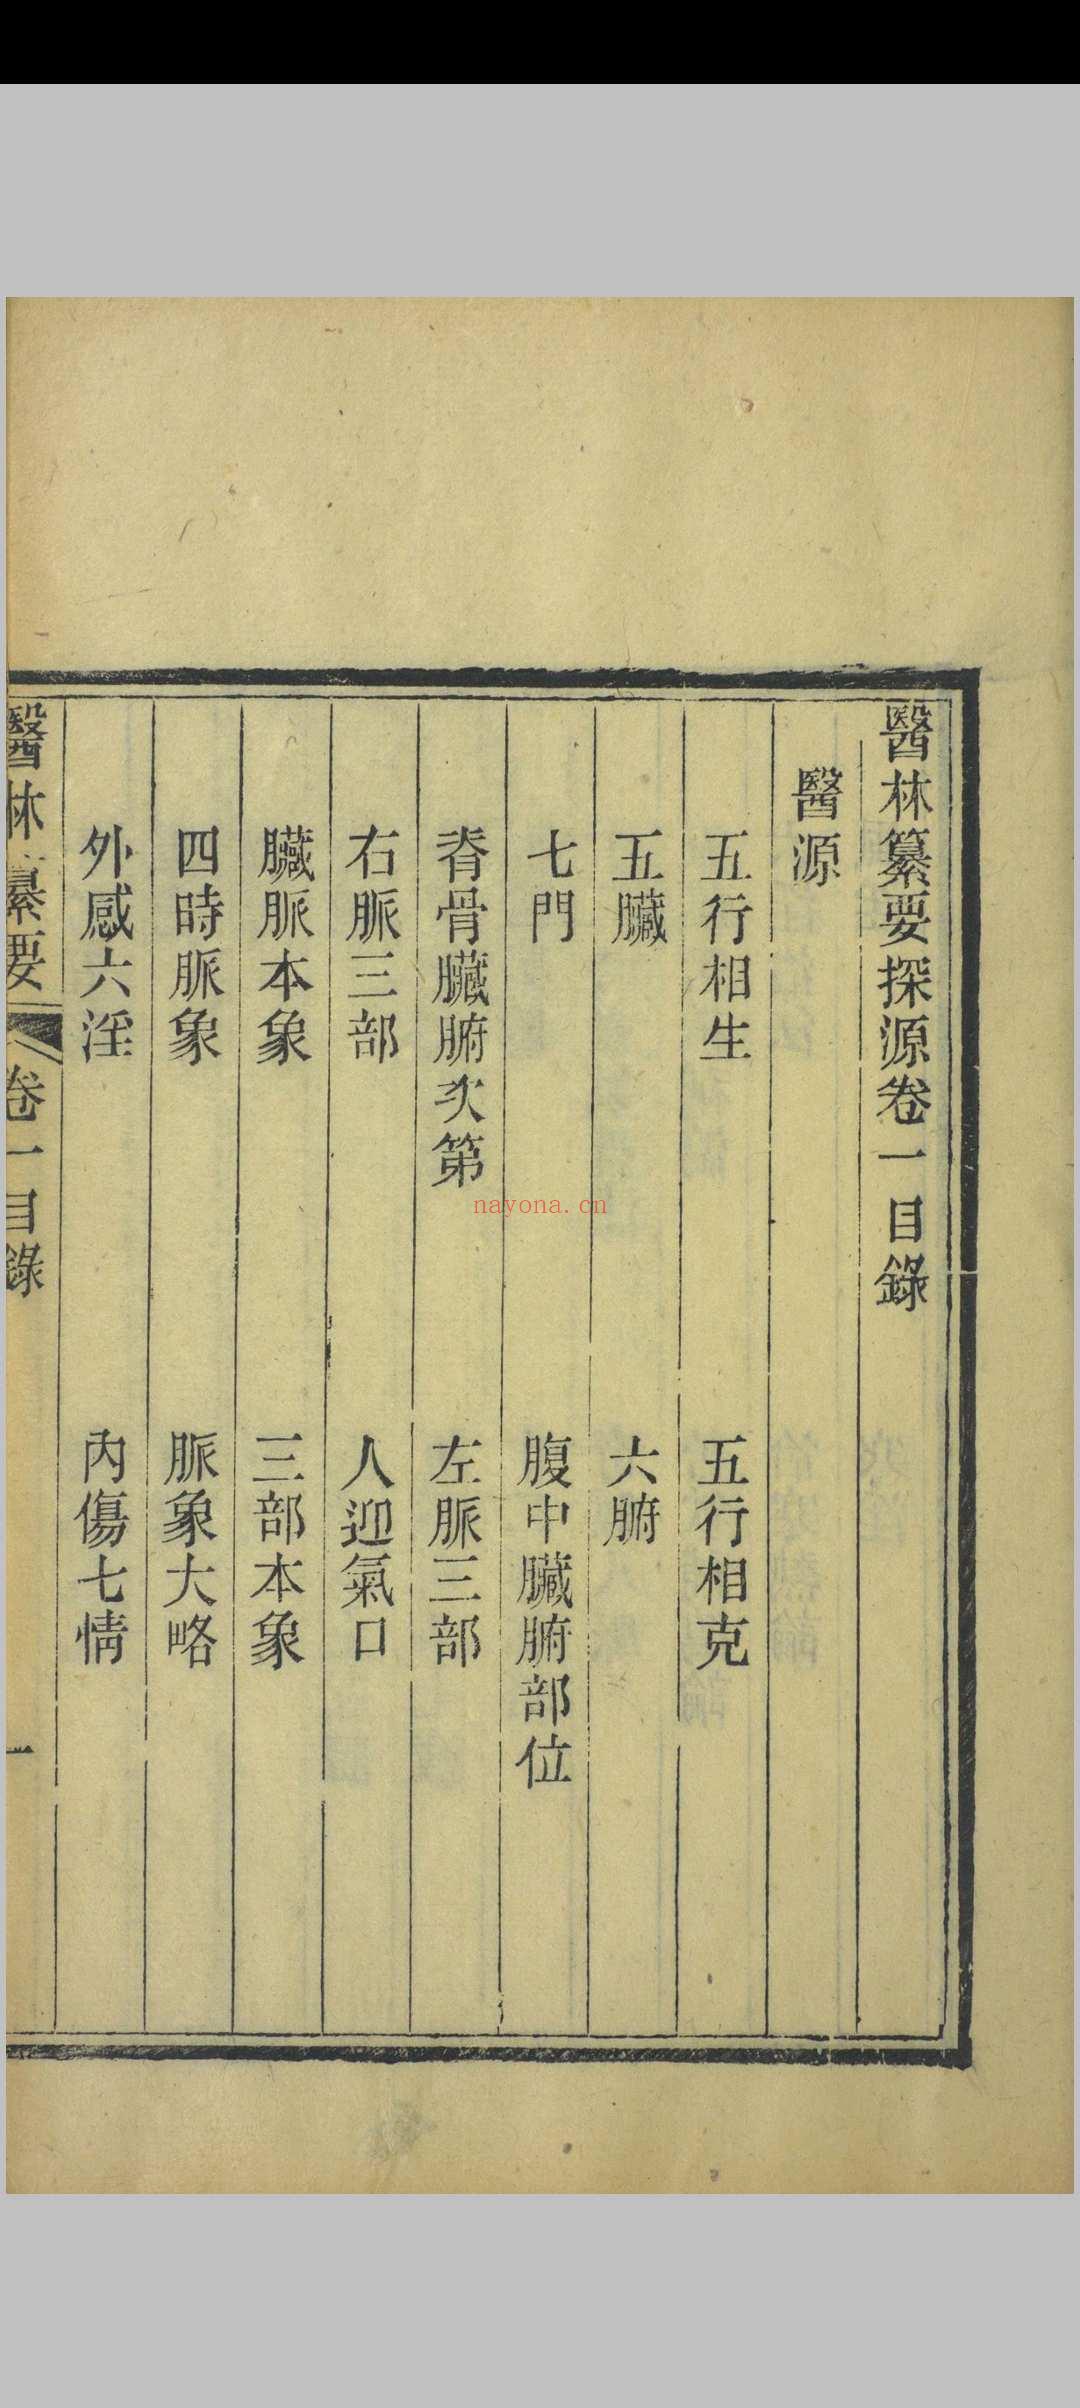 醫林纂要探源卷一目錄
醫源
五行相生　五行相克
五臟　六腑
七門　腹中臟腑部位
脊骨臟腑次第　左脈三部
右脈三部　人迎氣口
臟脈本象　三部本象
四時脈象　脈象大略
外感六淫　內傷七情
醫林纂要　卷一目錄　一
nayona.cn